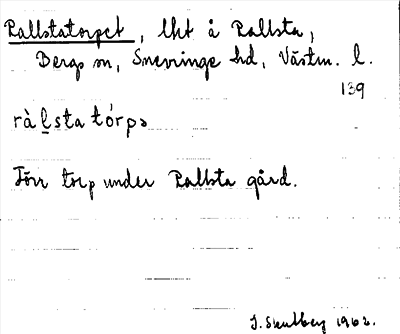 Rallstatorpet, lht å Rallsta,
Bergs sn, Snevringe hd, Västm. l.
139
ràl̲sta tórpə
Förr torp under Rallsta gård.
1962.